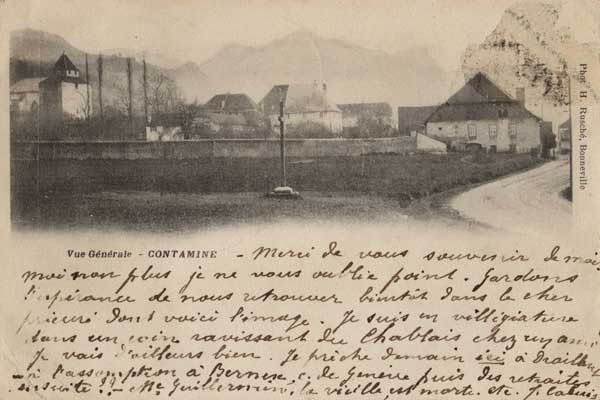 Phot. H. Rusché, Bonneville
Vue Générale - CONTAMINE - Merci de vous souvenir de moi,
moi non plus je ne vous oublie point. Gardons
l'espérance de nous retrouver bientôt dans le cher
prieuré dont voici l'image. Je suis en villégiature
dans un coin ravissant du Chablais chez un ami
Je vais d'ailleurs bien. Je prêche demain ici à Draillant
à l'assomption à Bernex, c. de Genève puis des retraites
ensuite - Me Guillermin, la vieille, est morte. etc. J.